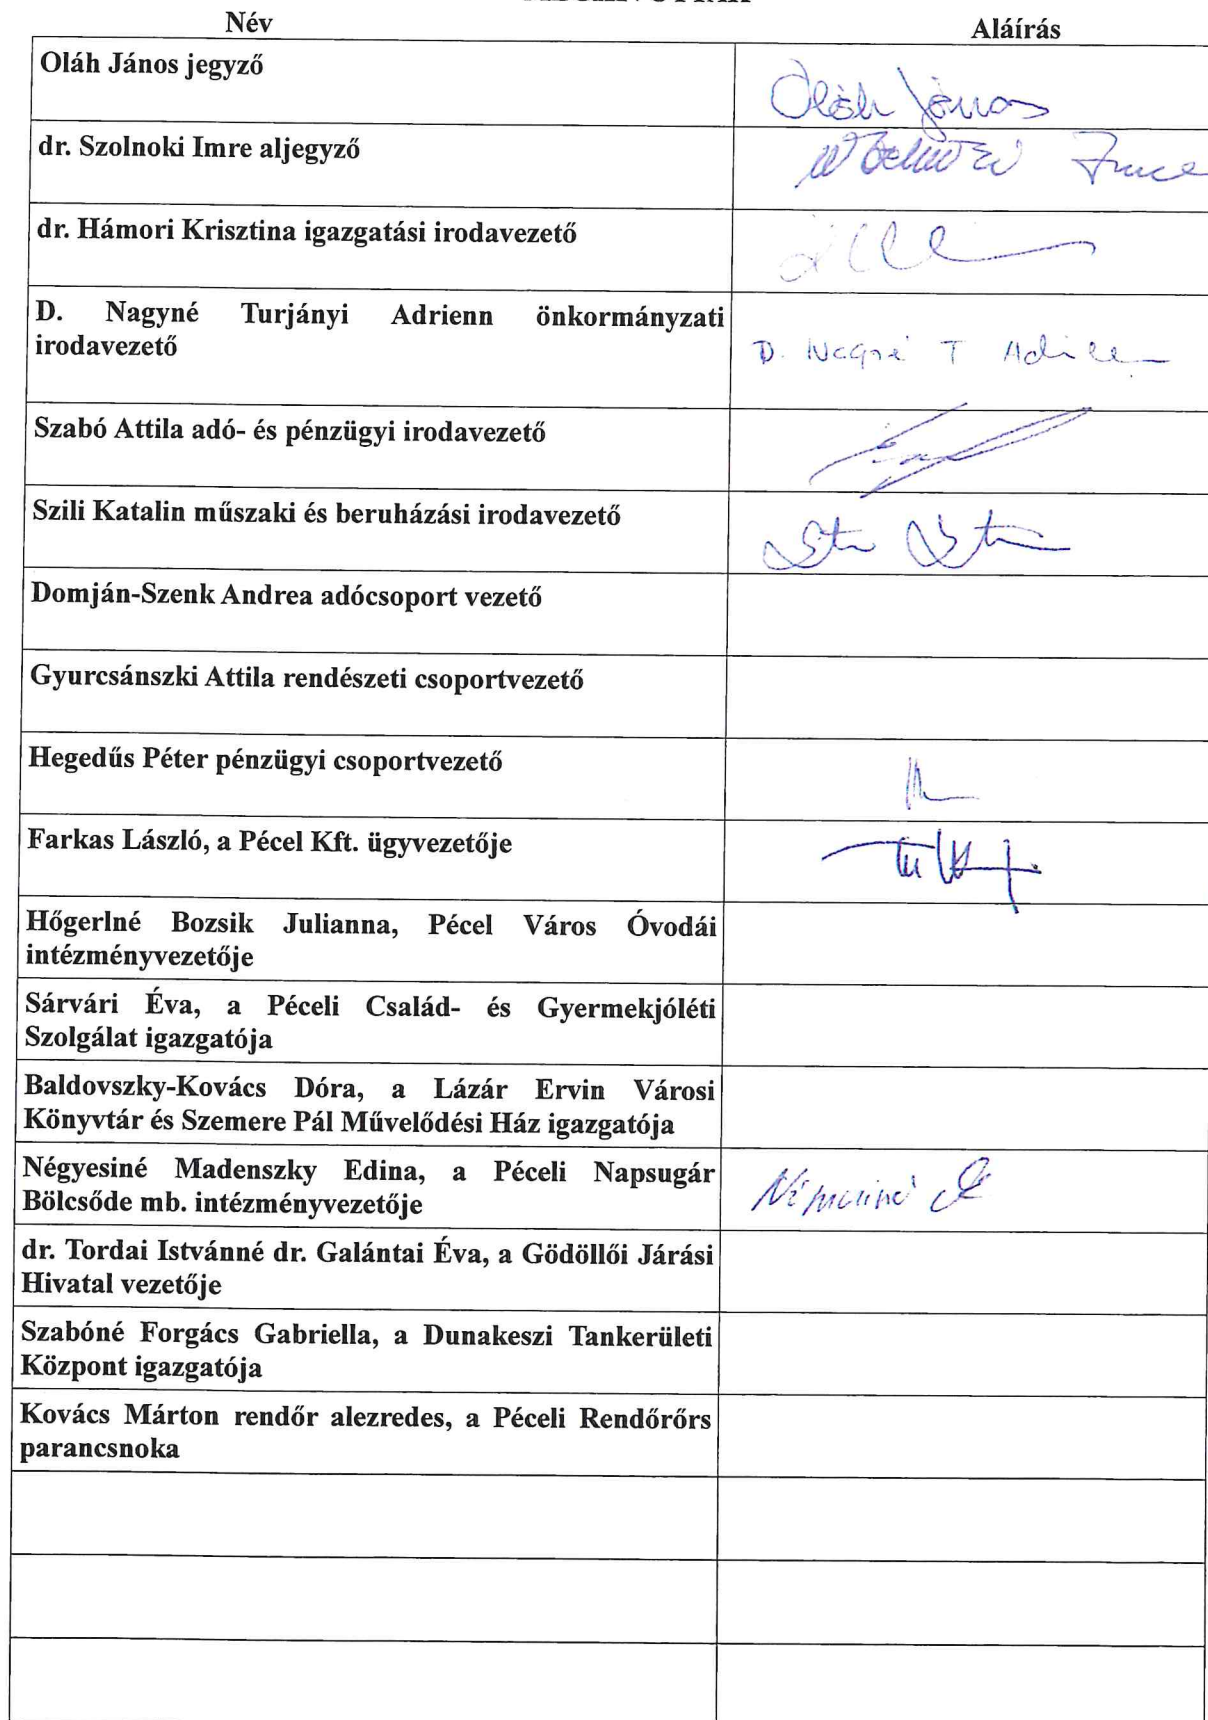 Név Aláírás
Oláh János jegyző
Oláh János
dr. Szolnoki Imre aljegyző
Imre
dr. Hámori Krisztina igazgatási irodavezető
D. Nagyné Turjányi Adrienn önkormányzati
irodavezető
D. Nagyné T Adrienn
Szabó Attila adó- és pénzügyi irodavezető
Szili Katalin műszaki és beruházási irodavezető
Domján-Szenk Andrea adócsoport vezető
Gyurcsánszki Attila rendészeti csoportvezető
Hegedűs Péter pénzügyi csoportvezető
Farkas László, a Pécel Kft. ügyvezetője
Hőgerlné Bozsik Julianna, Pécel Város Óvodái
intézményvezetője
Sárvári Éva, a Péceli Család- és Gyermekjóléti
Szolgálat igazgatója
Baldovszky-Kovács Dóra, a Lázár Ervin Városi
Könyvtár és Szemere Pál Művelődési Ház igazgatója
Négyesiné Madenszky Edina, a Péceli Napsugár
Bölcsőde mb. intézményvezetője
dr. Tordai Istvánné dr. Galántai Éva, a Gödöllői Járási
Hivatal vezetője
Szabóné Forgács Gabriella, a Dunakeszi Tankerületi
Központ igazgatója
Kovács Márton rendőr alezredes, a Péceli Rendőrőrs
parancsnoka